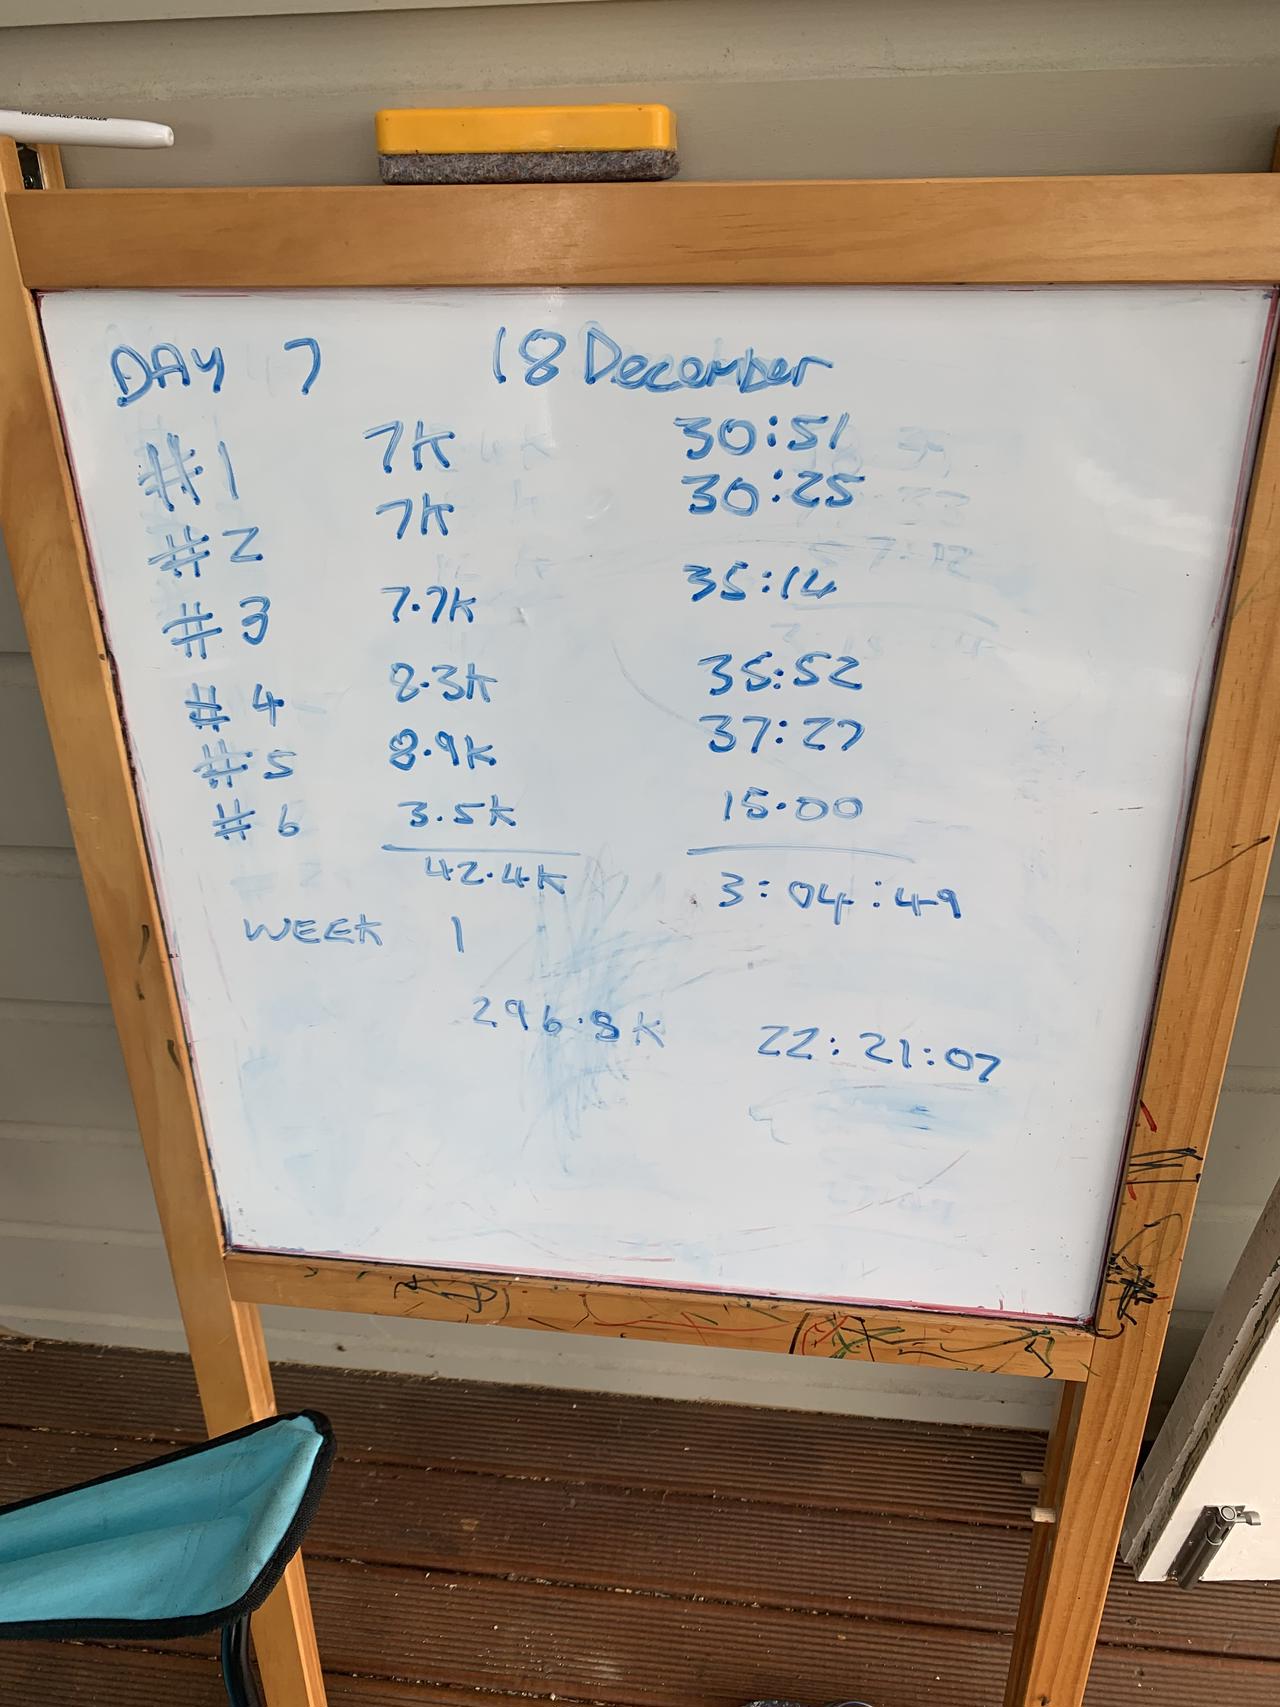 WHITEBOARD MARKER
DAY 7 18 December
#1 7K 30:51
#2 7K 30:25
#3 7.7K 35:14
#4 8.3K 35:52
#5 8.9K 37:27
#6 3.5K 15.00
42.4K 3:04:49
WEEK 1
296.8K 22:21:07